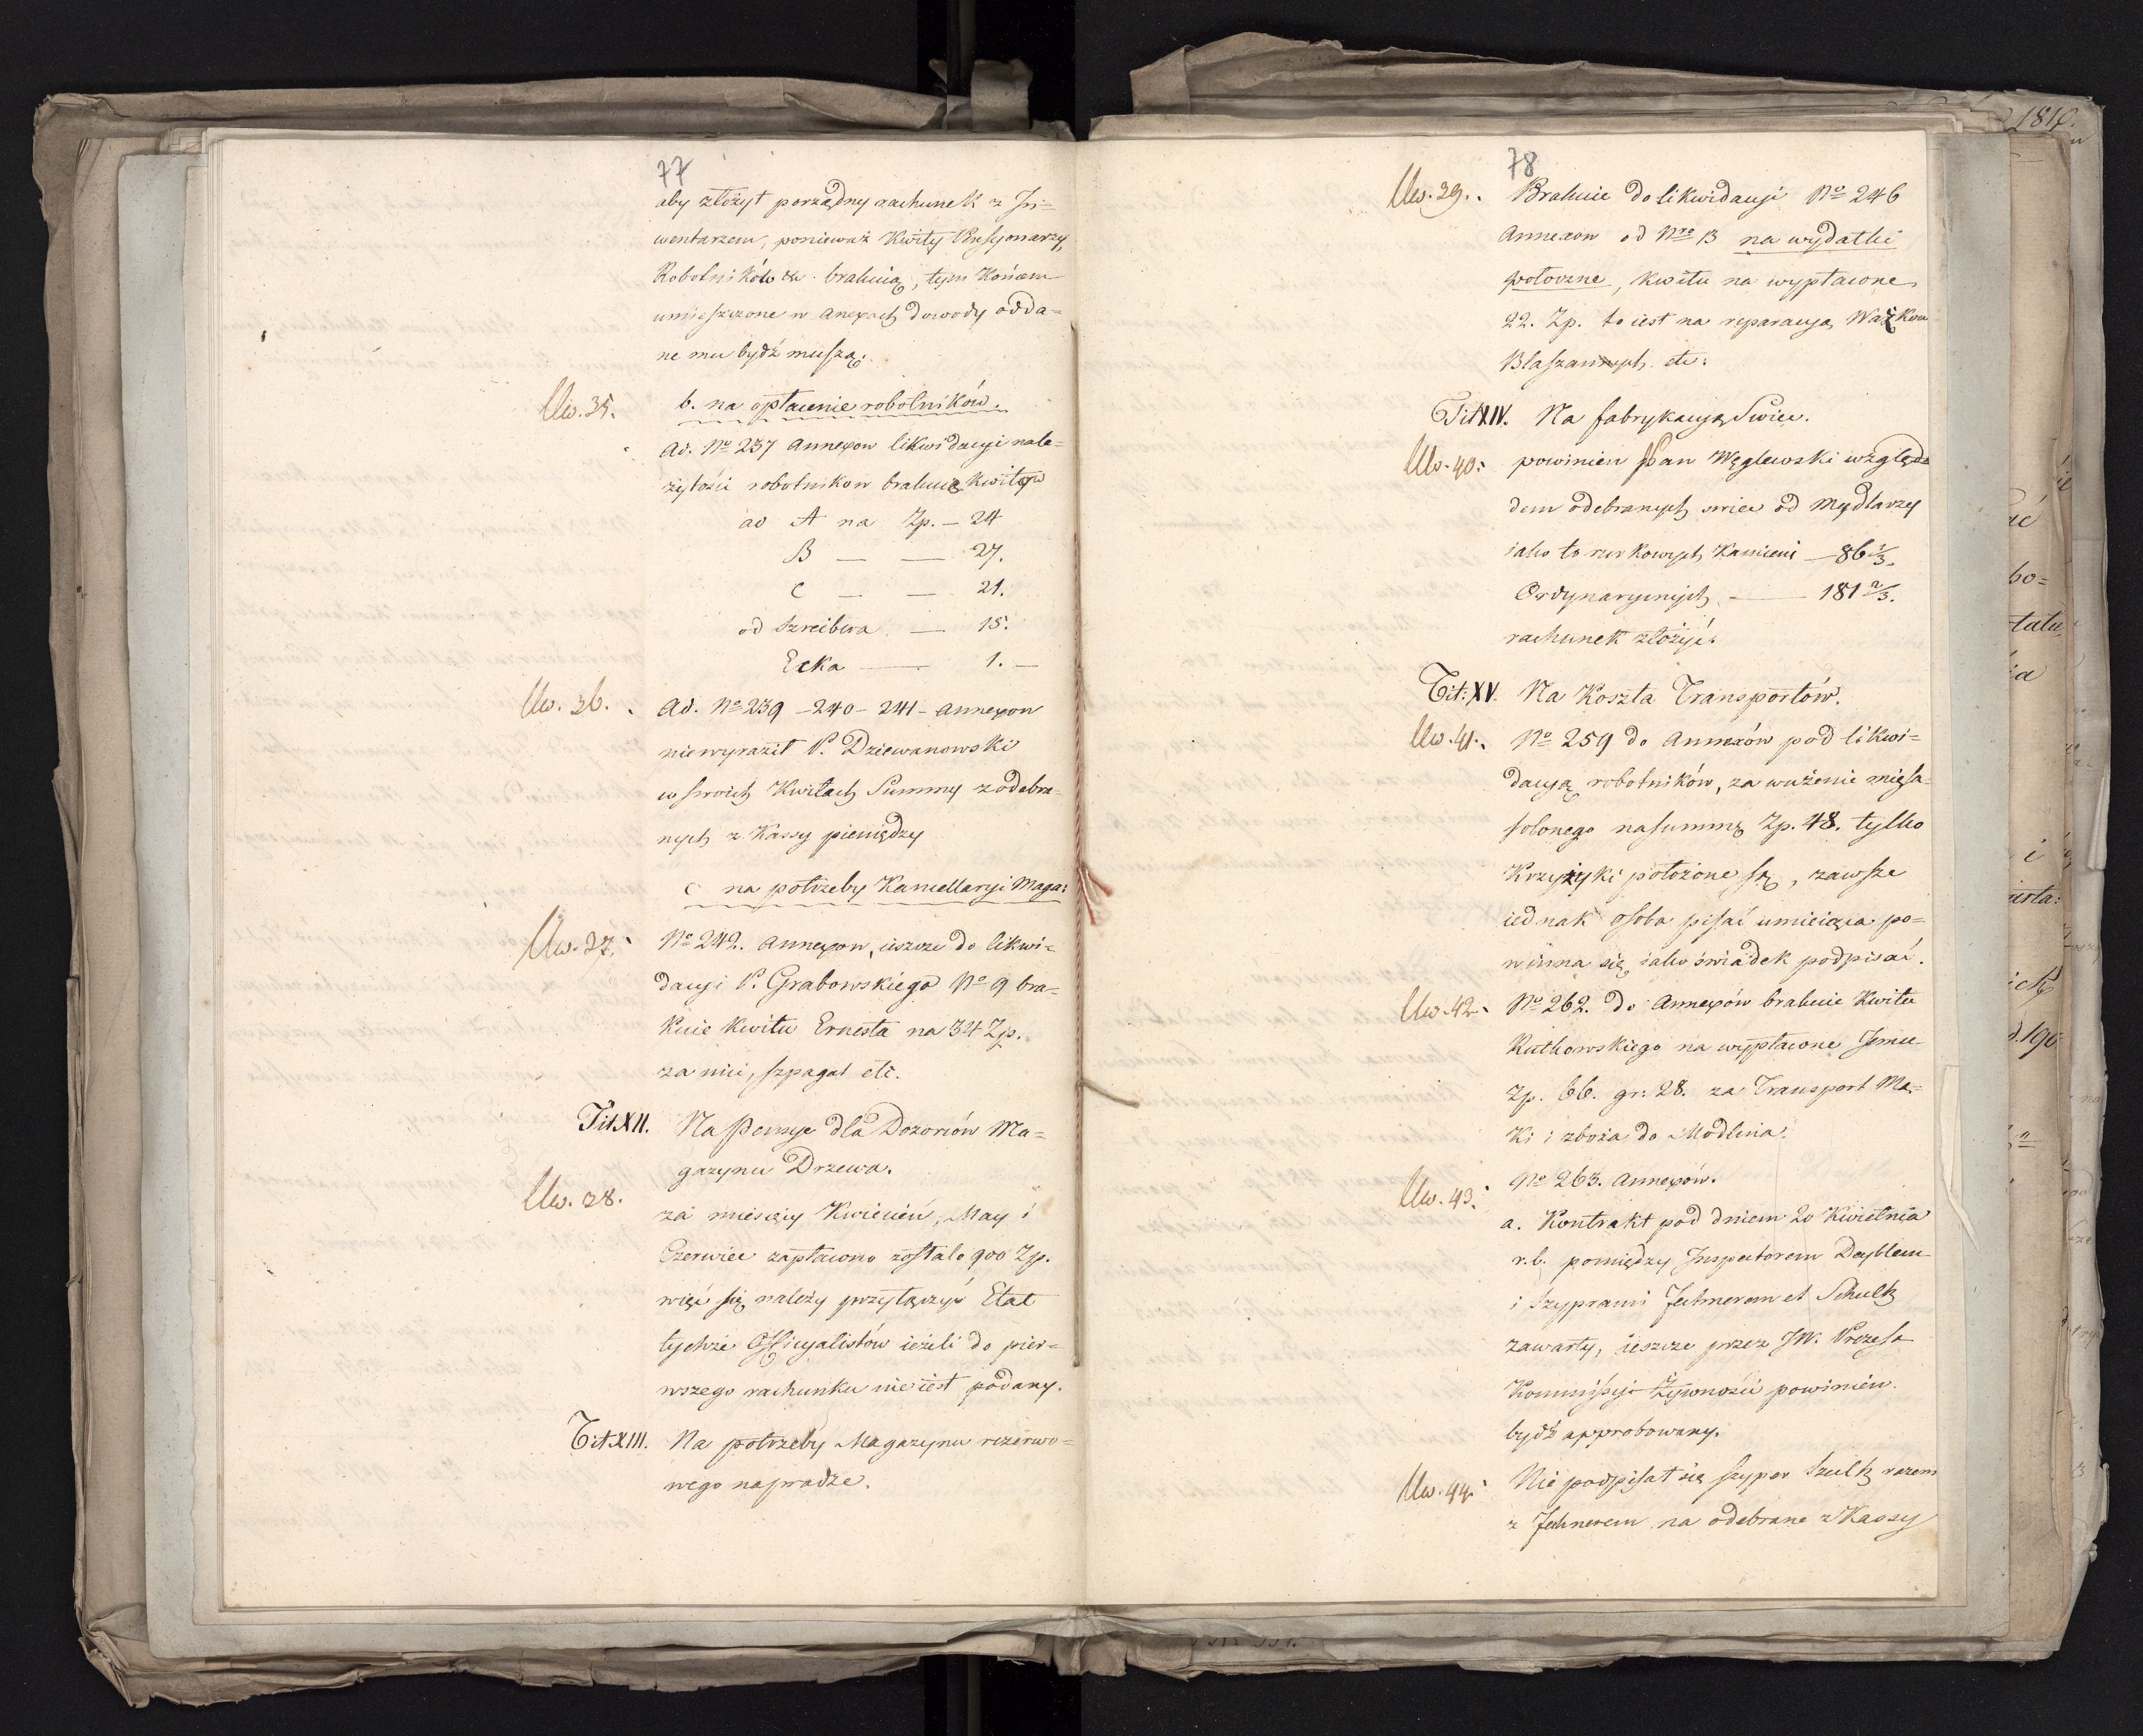 77
aby złożył porządny rachunek z In=
wentarzem, ponieważ Kwity Pensyonarzy,
Robotników &c. brakuią, tym Końcem
umieszczone w anexach dowody odda=
ne mu bydź muszą.
Uw. 35. b. na opłacenie robotników.
Ad. No 237 Annexow likwidacyi nale=
żytości robotnikow brakuie kwitow
ad A na Zp. — 24
B — — 27.
C — — 21.
od Szreibera — 15.
Ecka — 1. —
Uw. 36. Ad. No 239 – 240 – 241 – annexow
nie wyraził P. Dziewanowski
w swoich Kwitach Summy z odebra=
nych z Kassy pieniędzy
c na potrzeby Kancellaryi Maga:
Uw. 37. No 242. Annexow, ieszcze do likwi=
dacyi P. Grabowskiego No 9 bra=
kuie kwitu Ernesta na 34 Zp.
za nici, szpagat etc.
Tit XII. Na Pensye dla Dozorców Ma=
gazynu Drzewa.
Uw. 38. za miesięcy Kwiecień, May i
Czerwiec zapłacono zostało 900 Zp.
więc się należy przyłączyć Etat
tychże Officyalistów ieżeli do pier=
wszego rachunku nie iest podany.
Tit XIII. Na potrzeby Magazynu rezerwo=
wego na pradze.
78
Uw. 39. Brakuie do likwidacyi No 246
Annexow od Nro 13 na wydatki
potoczne, kwitu na wypłacone
22. Zp. to iest na reparacyą Ważkow
Blaszannych etc:
Tit XIV. Na fabrykacyą Swiec.
Uw. 40. powinien Pan Węglewski wzglę=
dem odebranych swiec od Mydlarzy
iako to rurkowych Kamieni — 86 1/3.
Ordynaryinych — 181 2/3.
rachunek złożyć.
Tit: XV. Na Koszta Transportów.
Uw. 41. No 259 do Annexów pod likwi=
dacyą robotników, za ważenie mięsa
solonego na summę Zp. 48. tylko
Krzyżyki położone są, zawsze
iednak osoba pisać umieiąca po=
winna się iako świadek podpisać.
Uw. 42. No 262. do Annexów brakuie Kwitu
Rutkowskiego na wypłacone Jemu
Zp. 66. gr: 28. za Transport Mą=
ki i zboża do Modlina.
Uw. 43. No 263. Annexów.
a. Kontrakt pod dniem 20 Kwietnia
r.b. pomiędzy Inspectorem Deyblem
i Szyprami Jechnerem et Schultz
zawarty, ieszcze przez JW. Prezesa
Kommissyi Żywności powinien
bydź approbowany.
Uw. 44. Nie podpisał się szyper Szultz razem
z Jechnerem na odebrane z Kassy
1810.